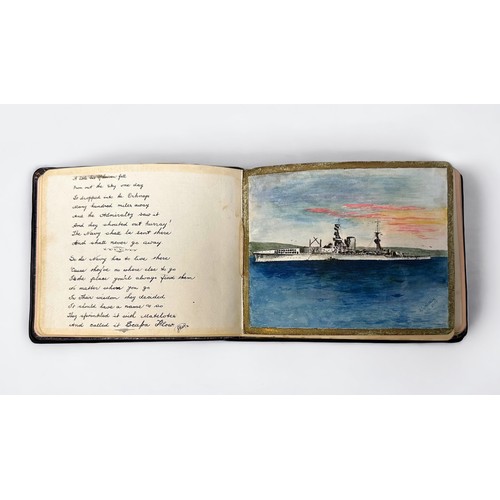 A little bit of heaven fell
From out the sky one day
It dropped into the Orkneys
Many hundred miles away
And the Admiralty saw it
And they shouted out hurray!
The Navy shall be sent there
And shall never go away
So the Navy has to live there
'Cause they've no where else to go
In the place you'll always find them
No matter where you go
In their wisdom they decided
It should have a name so
They sprinkled it with Matelotes
And called it Scapa Flow